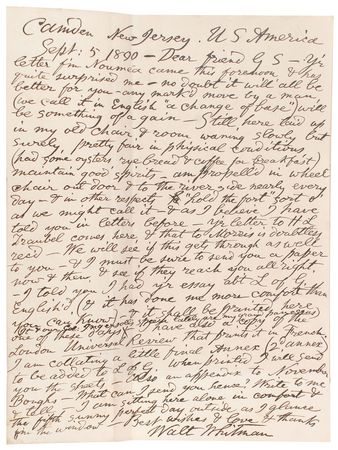 Camden New Jersey. U S America
Sept: 5 1890 - Dear friend G S - Yr
letter f'm Noumea came this forenoon & has
quite surprised me - no doubt it will all be
better for you - any mark'd move by a man
(we call it in English "a change of base") will
be something of a gain - Still here laid up
in my old chair & room waning slowly but
surely, pretty fair in physical conditions
(had some oysters rye bread & coffee for breakfast)
maintain good spirits - am propell'd in wheel
chair out door & to the river side nearly every
day - & in other respects "hold the fort sort o'"
as we might call it - & as I believe I have
told you in letters before - Yr letter to H L
Traubel comes here & that to Morris is doubtless
rec'd - We will see if this gets through as well
to you - & I must be sure to send you a paper
now & then & see if they reach you all right -
I told you I had yr essay abt L of G.
English'd (& it has done me more comfort than
you can know) & it shall be printed here
one of these I have also a copy of the
London Universal Review that prints it in French -
I am collating a little final Annex (2d annex
to be added to L of G. When printed I will send
you the sheets Also an appendix to November
Boughs - What can I send you hence? Write to me
& tell - I am sitting here alone in comfort &
the fifth sunny perfect day outside as I glance
f'm the window - Best wishes & love & thanks
Walt Whitman